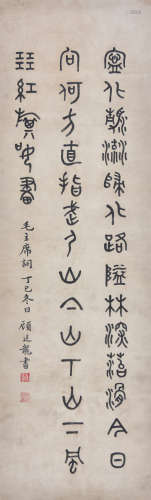 寧化清流歸化路隘林深苔滑今日
向何方直指武夷山下山下山下風
展紅旗如畫
毛主席詞 丁巳冬日 顧廷龍書